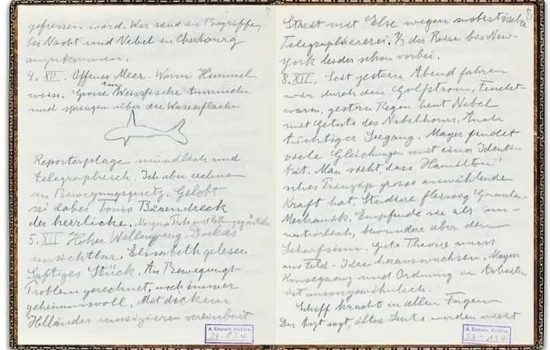 gefressen ward. Wir sind im Begriffe,
bei Nacht und Nebel in Cherbourg
anzukommen.
4. XII. Offenes Meer. Warm Himmel
weiss. Grosse Weissfische tummeln
und springen über die Wasserfläche
Reporterplage mündlich und
telegraphisch. Ich aber rechnen
an Bewegungsgesetz. Gelobt
sei dabei Toni's
die herrliche. Morgens
5. XII. Hoher Wellengang
unsichtbar. Elisabeth gelesen
Saftiges Stück. An Bewegungs-
Problem gerechnet, noch immer
geheimnisvoll. Mit dickem
Holländer musizieren vereinbart
8
Streit mit Else wegen
Telegraphiererei. 1/3 der Reise bei New-
York leider schon vorbei.
8. XII. Seit gestern Abend fahren
wir durch den Golfstrom, feucht-
warm, gestern Regen heut Nebel
mit Getute des Nebelhorns, Trotz
tüchtiger Seegang. Mayer findet
viele Gleichungen mit einer Identi-
tät. Man sieht, dass Hamilton'
sches Prinzip grosse auswählende
Kraft hat. Studiere fleissig Quanten-
Mechanik. Empfinde sie als un-
natürlich, bewundere aber den
Scharfsinn. Gute Theorie muss
aus Feld-Idee herauswachsen. Mayers
und Ordnung im Arbeiten
ist
Schiff kracht in allen Fugen
Der Arzt sagt, ältere Leute würden nicht
A. Einstein Archive
29-134
A. Einstein Archive
29-134